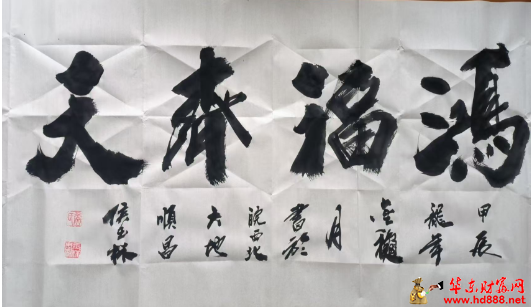 鴻福齊天
甲辰
龍年
金龍
月
書於
皖西北
大地
順昌
侯玉林
华东财富网
www.hd888.net